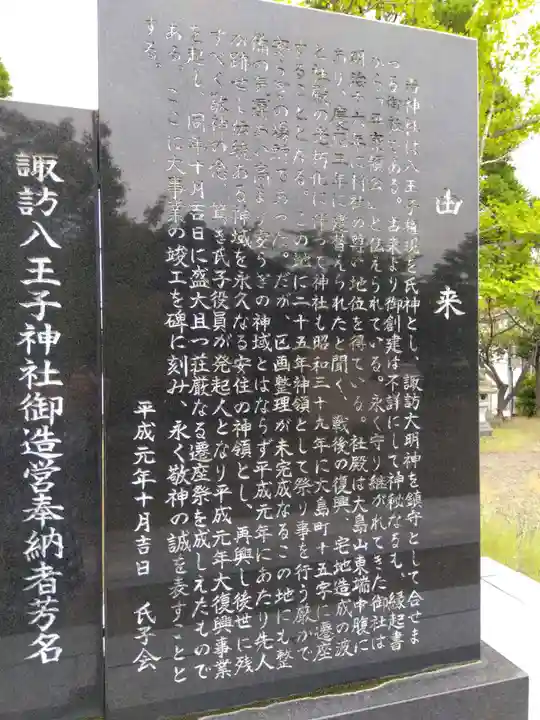 由来
当神社は八王子権現を氏神とし、諏訪大明神を鎮守として合せま
つる御社である。古来より御創建は不詳にして神秘なるも、縁起書
から「平安領会」と伝えられている。永く守り継がれてきた御社は
明治十一年に村社の尊い地位を得ている。社殿は大島山東端中腹に
あり、慶応三年に遷替えられたと聞く、戦後の復興、宅地造成の波
と社殿の老朽化に伴って神社も昭和三十九年に大島町十五字に遷座
することとなる。この地に二十五年神領として祭り事を行う厳かで
安らぎの場所であった。だが、区画整理が未完成なるこの地にも整
備の
より安らぎの神域とはならず平成元年にあたり先人
が跡せし伝統ある御域を永久なる安住の神領とし、再興し後世に残
すべく敬神の念、篤き氏子役員が発起人となり平成元年大復興事業
を起し、同年十月吉日に盛大且つ荘厳なる遷座祭を成しえたもので
ある。ここに大事業の竣工を碑に刻み、永く敬神の誠を表すことと
する。
平成元年十月吉日　氏子会
諏訪八王子神社御造営奉納者芳名